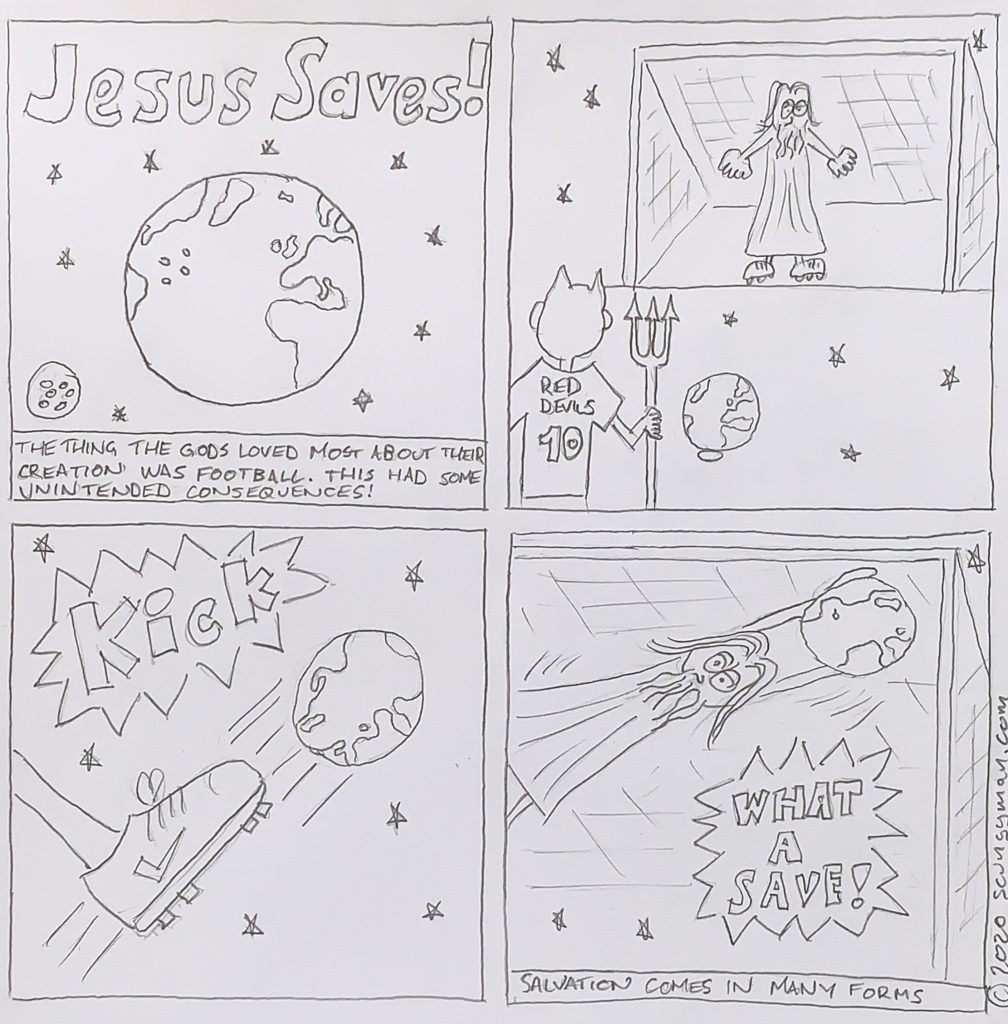 Jesus Saves!
THE THING THE GODS LOVED MOST ABOUT THEIR
CREATION WAS FOOTBALL. THIS HAD SOME
UNINTENDED CONSEQUENCES!
RED
DEVILS
10
Kick
WHAT
A
SAVE!
SALVATION COMES IN MANY FORMS
© 2020 scungyman.com